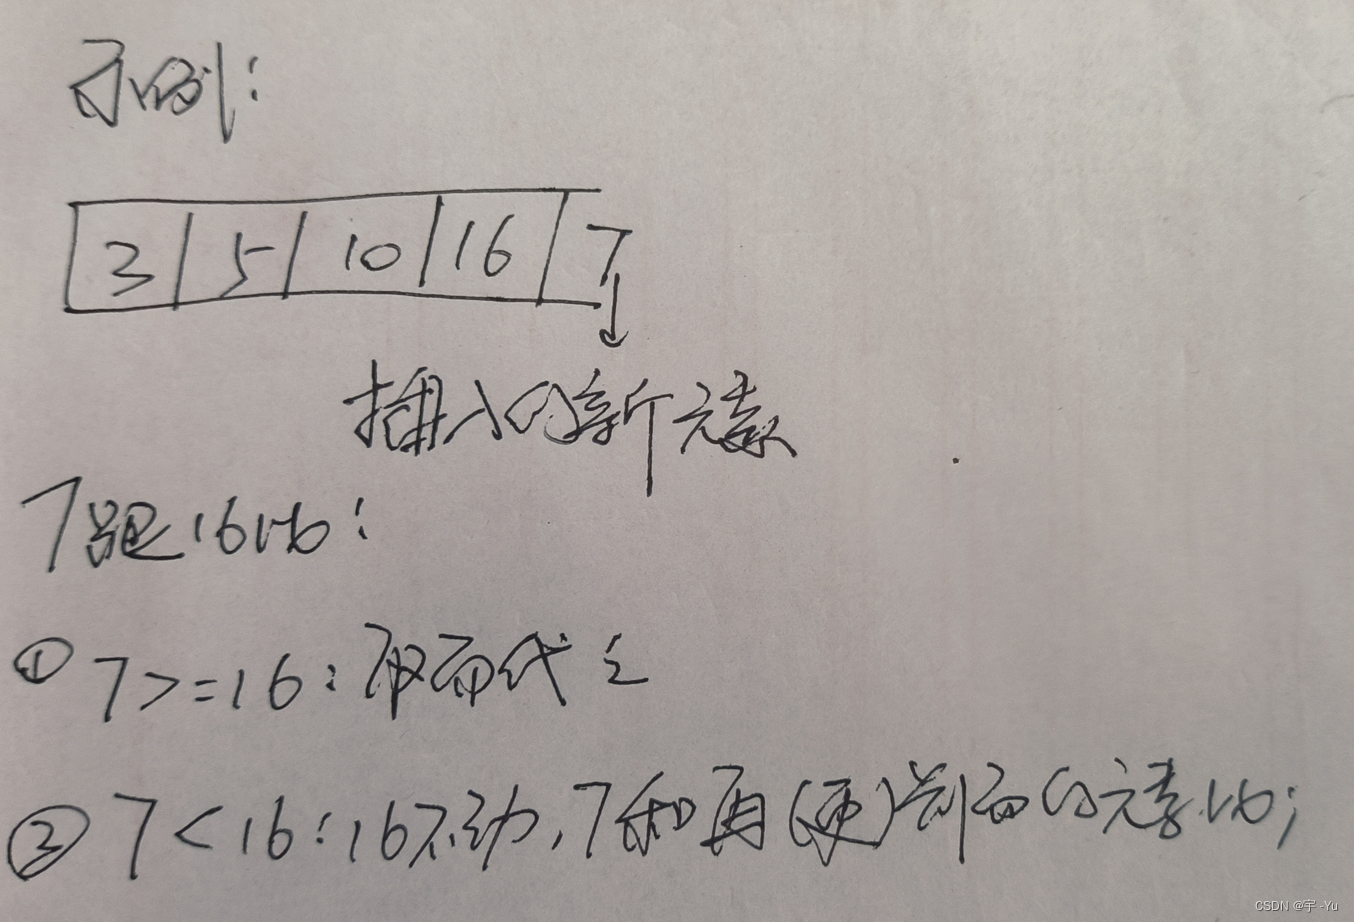 示例:
3 5 10 16 7
插入的新元素
7跟16比:
① 7>=16:取而代之
② 7<16:16不动,7和再(更)前面的元素比;
CSDN @宇-Yu